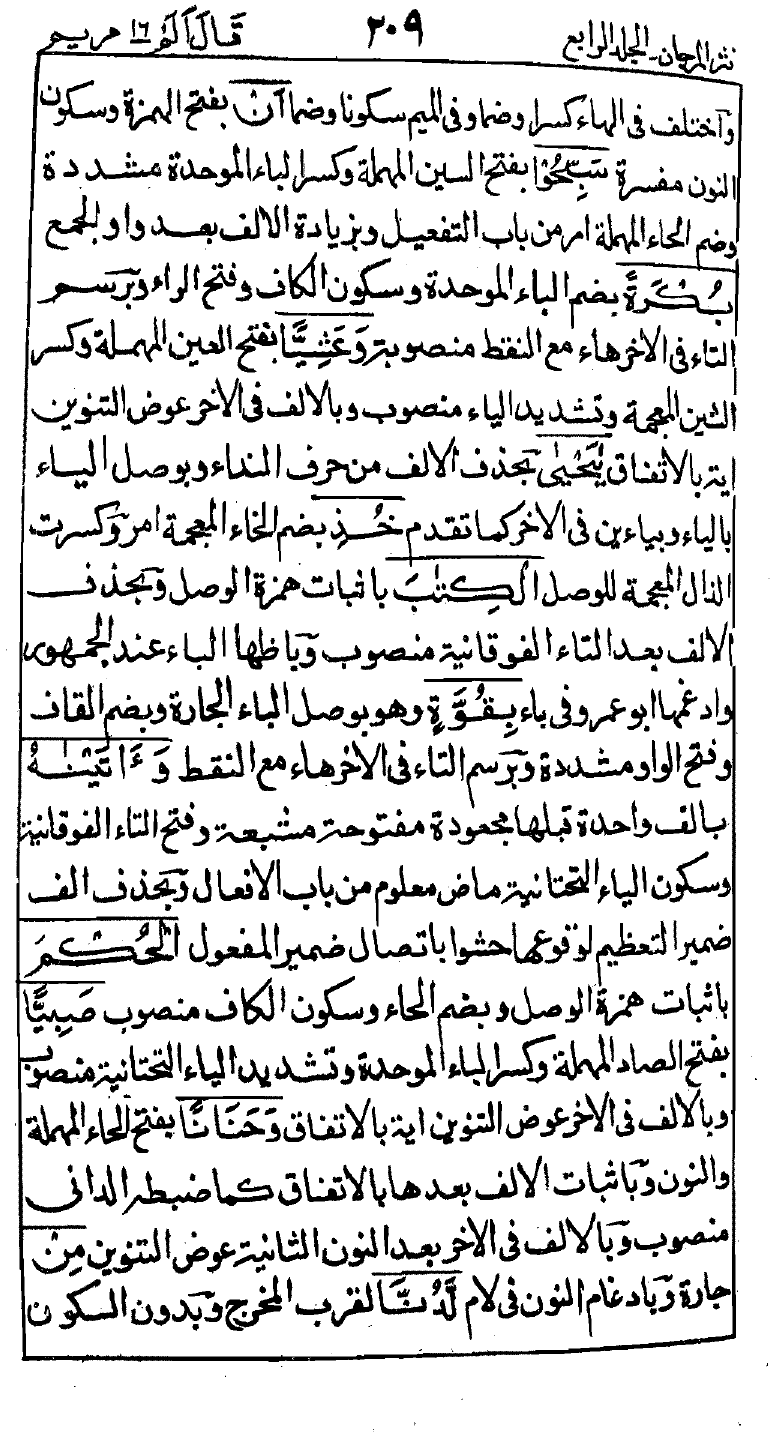 نثر المرجان۔ الجلد الرابع ٢٠٩ قال الم ١٦ مريم
واختلف فى الهاء كسرا وضما وفى الميم سكونا وضما أَنْ بفتح الهمزة وسكون
النون مفسرة سَبِّحُوْا بفتح السين المهملة وكسر الباء الموحدة مشددة
وضم الحاء المهملة امر من باب التفعيل وبزيادة الالف بعد واو الجمع
بُكْرَةً بضم الباء الموحدة وسكون الكاف وفتح الراء وبرسم
التاء فى الاخر هاء مع النقط منصوبة وَعَشِيًّا بفتح العين المهملة وكسر
الشين المعجمة وتشديد الياء منصوب وبالالف فى الاخر عوض التنوين
اية بالاتفاق يٰيَحْيٰى بحذف الالف من حرف النداء وبوصل الياء
بالياء وبياءين فى الاخر كما تقدم خُذِ بضم الخاء المعجمة امر وكسرت
الذال المعجمة للوصل الْكِتٰبَ باثبات همزة الوصل وبحذف
الالف بعد التاء الفوقانية منصوب وباظهار الباء عند الجمهور
وادغمها ابو عمرو فى باء بِقُوَّةٍ وهو بوصل الباء الجارة وبضم القاف
وفتح الواو مشددة وبرسم التاء فى الاخر هاء مع النقط وَءَاتَيْنٰهُ
بالف واحدة قبلها مجعودة مفتوحة مشبعة وفتح التاء الفوقانية
وسكون الياء التحتانية ماض معلوم من باب الافعال وبحذف الف
ضمير التعظيم لوقوعها حشوا باتصال ضمير المفعول الْحُكْمَ
باثبات همزة الوصل وبضم الحاء وسكون الكاف منصوب صَبِيًّا
بفتح الصاد المهملة وكسر الباء الموحدة وتشديد الياء التحتانية منصوب
وبالالف فى الاخر عوض التنوين اية بالاتفاق وَحَنَانًا بفتح الحاء المهملة
والنون وباثبات الالف بعدها بالاتفاق كما ضبطه الدانى
منصوب وبالالف فى الاخر بعد النون الثانية عوض التنوين مِنْ
جارة وبادغام النون فى لام لَّدُنَّا لقرب المخرج وبدون السكون